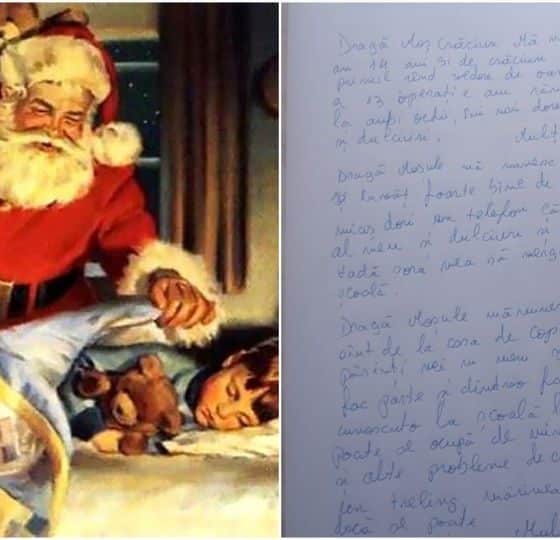 Dragă Moș Crăciun Mă n
am 14 ani și de crăciun
primul rând vedere de oa
a 13 operație am răm
la ambi ochi, îmi mai dor
și dulciuri. Mulț
Dragă Moșule mă numesc
și învăț foarte bine de
mieaș dori un telefon că
al meu și dulciuri și
sora mea să merg
școală.
Dragă Moșule mănumes
sînt de la casa de cop
părinți mei nu
fac parte și dintro fa
cunoscuto la școală
poate se ocupă de mine
și alte probleme de
un treling mărimea
dacă se poate Mul